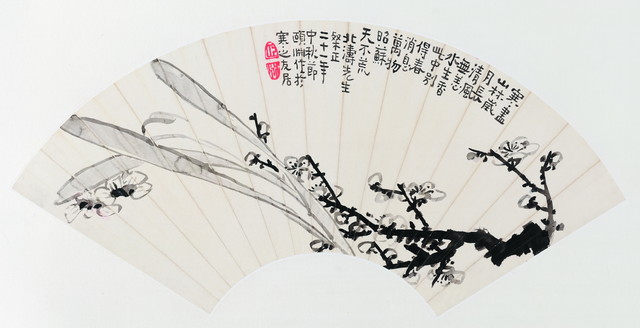 寒盡
山林歲
月長
清風
無恙
水生香
此中別
得春
消息
萬物
昭蘇
天不荒
北濤先生
粲正
二十二年
中秋節
頤淵作於
寒之友居